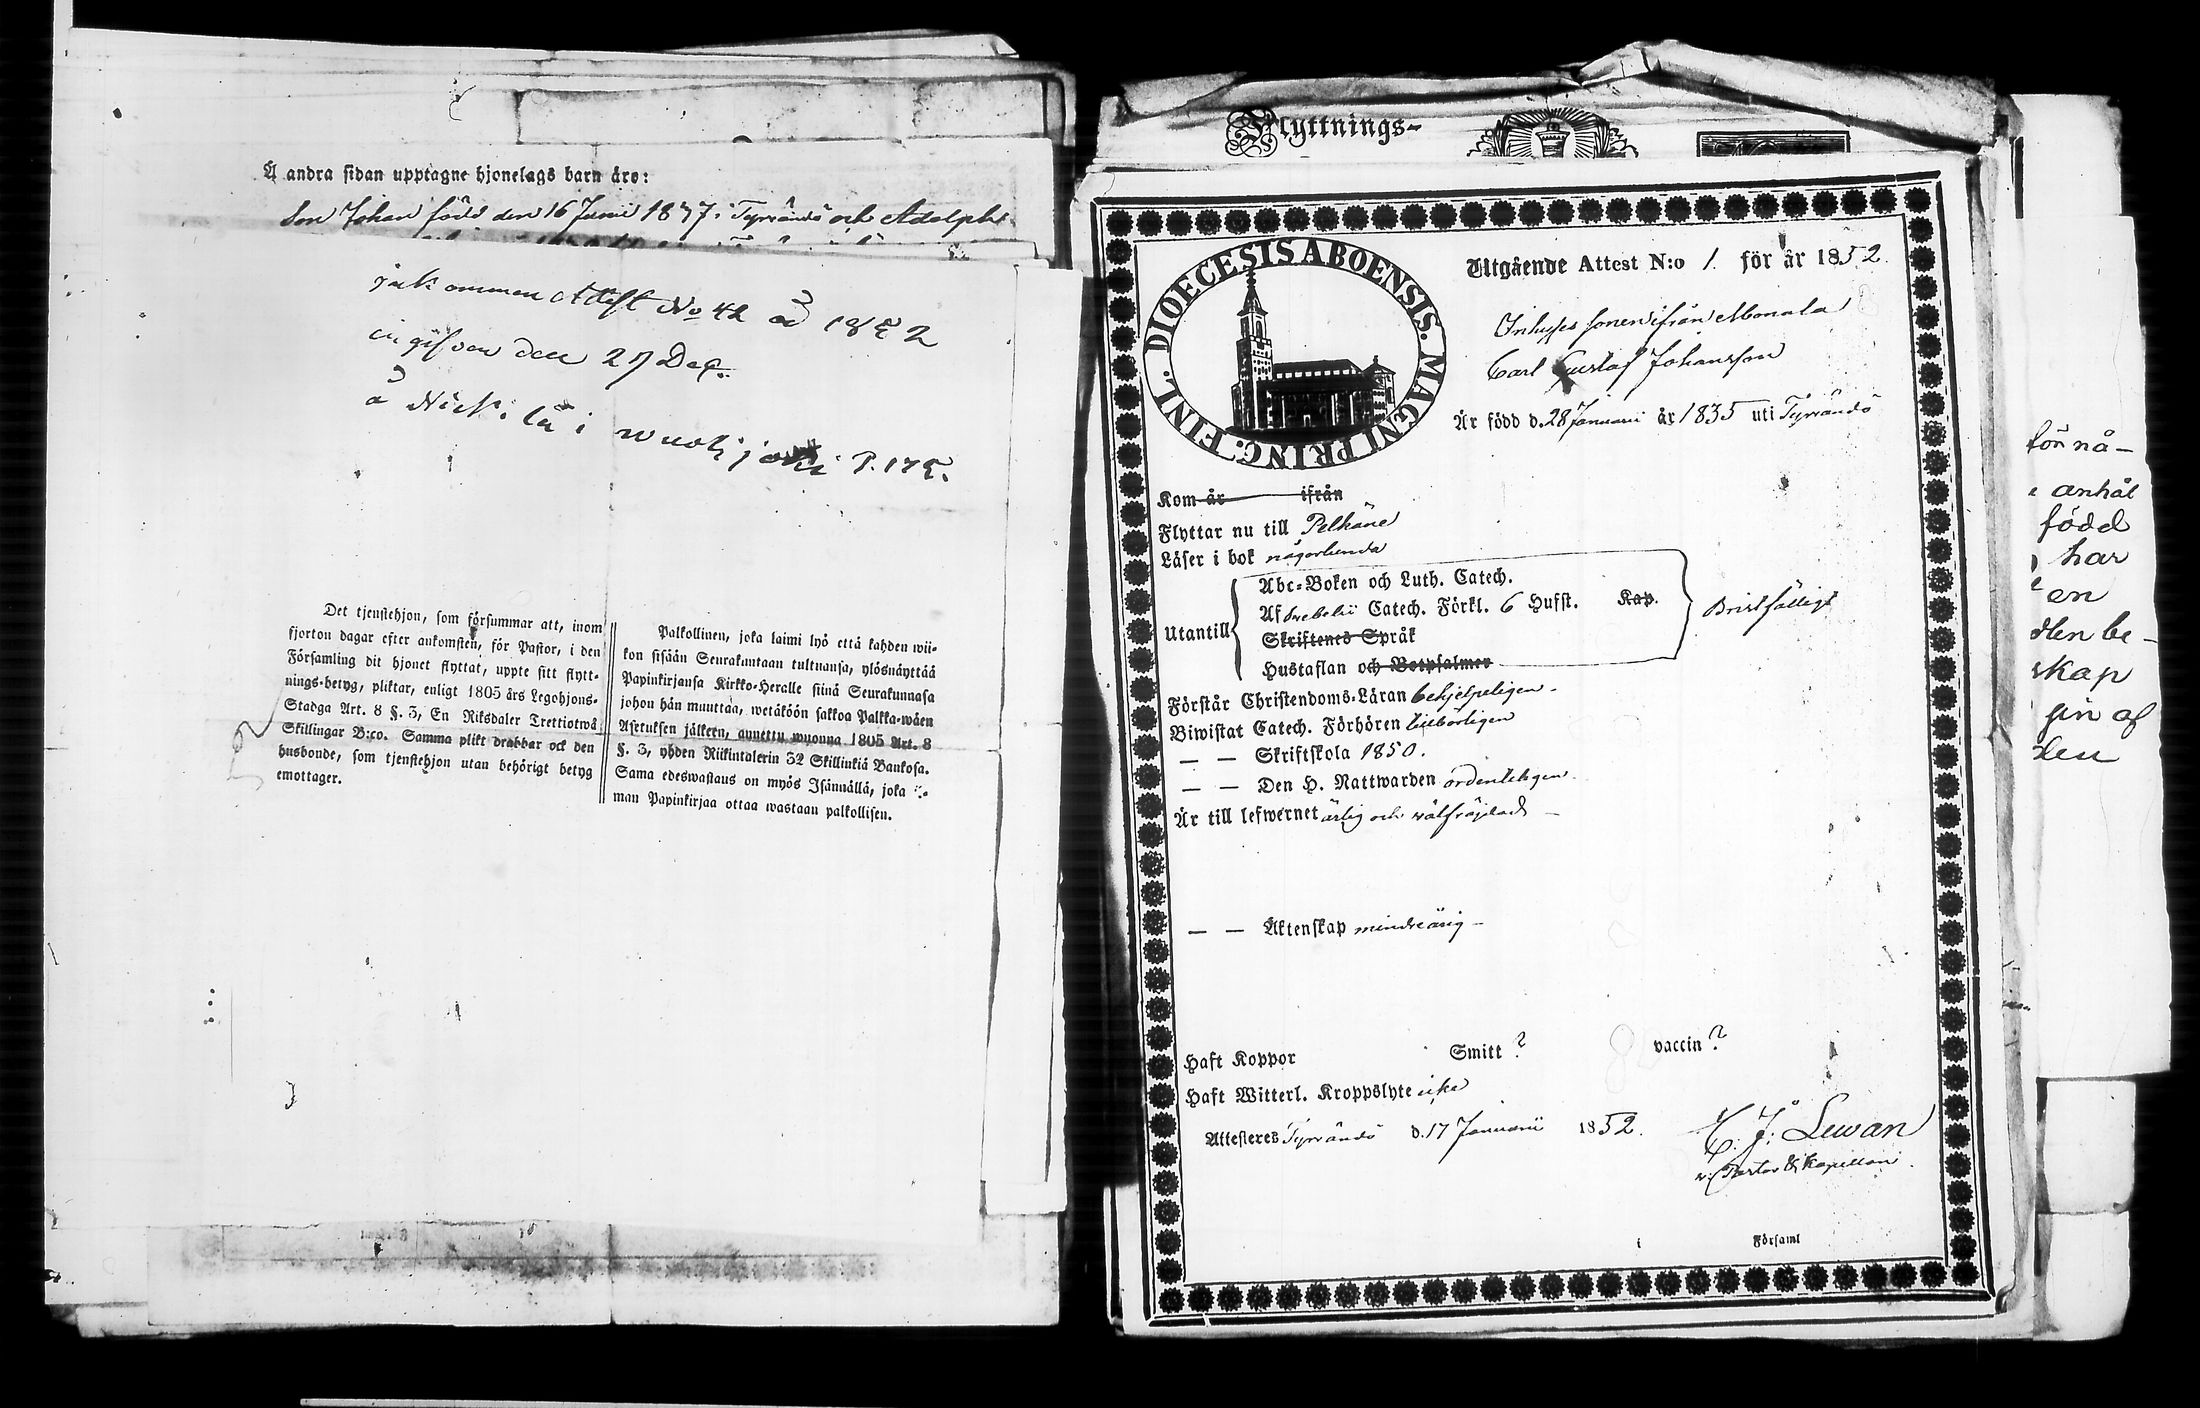 Å andra sidan upptagne hjonelags barn äro:
Son Johan född den 16 Junii 1847 i Tyrvändö och Adolph
ink ommen Attest No 42 å 1852
in gifven den 27 Dec.
å Nickilä i wuolijoki P. 175.
Det tjenstehjon, som försummar att, inom
fjorton dagar efter ankomsten, för Pastor, i den
Församling dit hjonet flyttat, uppte sitt flytt-
nings-betyg, pliktar, enligt 1805 års Legohjons-
Stadga Art. 8 §. 3, En Riksdaler Trettiotwå
Skillingar B:co. Samma plikt drabbar ock den
husbonde, som tjenstehjon utan behörigt betyg
emottager.
Palkollinen, joka laimi lyö että kahden wii-
kon sisään Seurakuntaan tultuansa, ylösnäyttää
Papinkirjansa Kirkko-Heralle siinä Seurakunnasa
johon hän muuttaa, wetäköön sakkoa Palkka-wäen
Asetuksen jälkeen, annettu wuonna 1805 Art. 8
§. 3, yhden Riikintalerin 32 Skillinkiä Bankosa.
Sama edeswastaus on myös Isännällä, joka il-
man Papinkirjaa ottaa wastaan palkollisen.
Flyttnings-
DIOECESIS ABOENSIS. MAGNI PRINC. FINL.
Utgående Attest N:o 1. för år 1852.
Inhyses sonen ifrån Monala
Carl Gustaf Johansson
Är född d. 28 Januarii år 1835 uti Tyrvändö
Kom år ifrån
Flyttar nu till Pelkäne
Läser i bok någorlunda
Abc-Boken och Luth. Catech.
Af Svebelii Catech. Förkl. 6 Hufst. Kap.
Utantill
Bristfälligt
Skriftenes Språk
Hustaflan och Botpsalmer
Förstår Christendoms-Läran behjelpeligen -
Biwistat Catech. Förhören tillbörligen
— — Skriftskola 1850.
— — Den H. Nattwarden ordenteligen
Är till lefwernet ärlig och välfräjdad —
— — Äktenskap mindreårig —
Haft Koppor Smitt ? vaccin ?
Haft Witterl. Kroppslyte icke
Attesteres Tyrvändö d. 17 Januarii 1852.
C. J. Lewan
v. Pastor & Kapellan.
i Församl
för nå-
anhål
född
har
en
den be-
skap
gin af
den